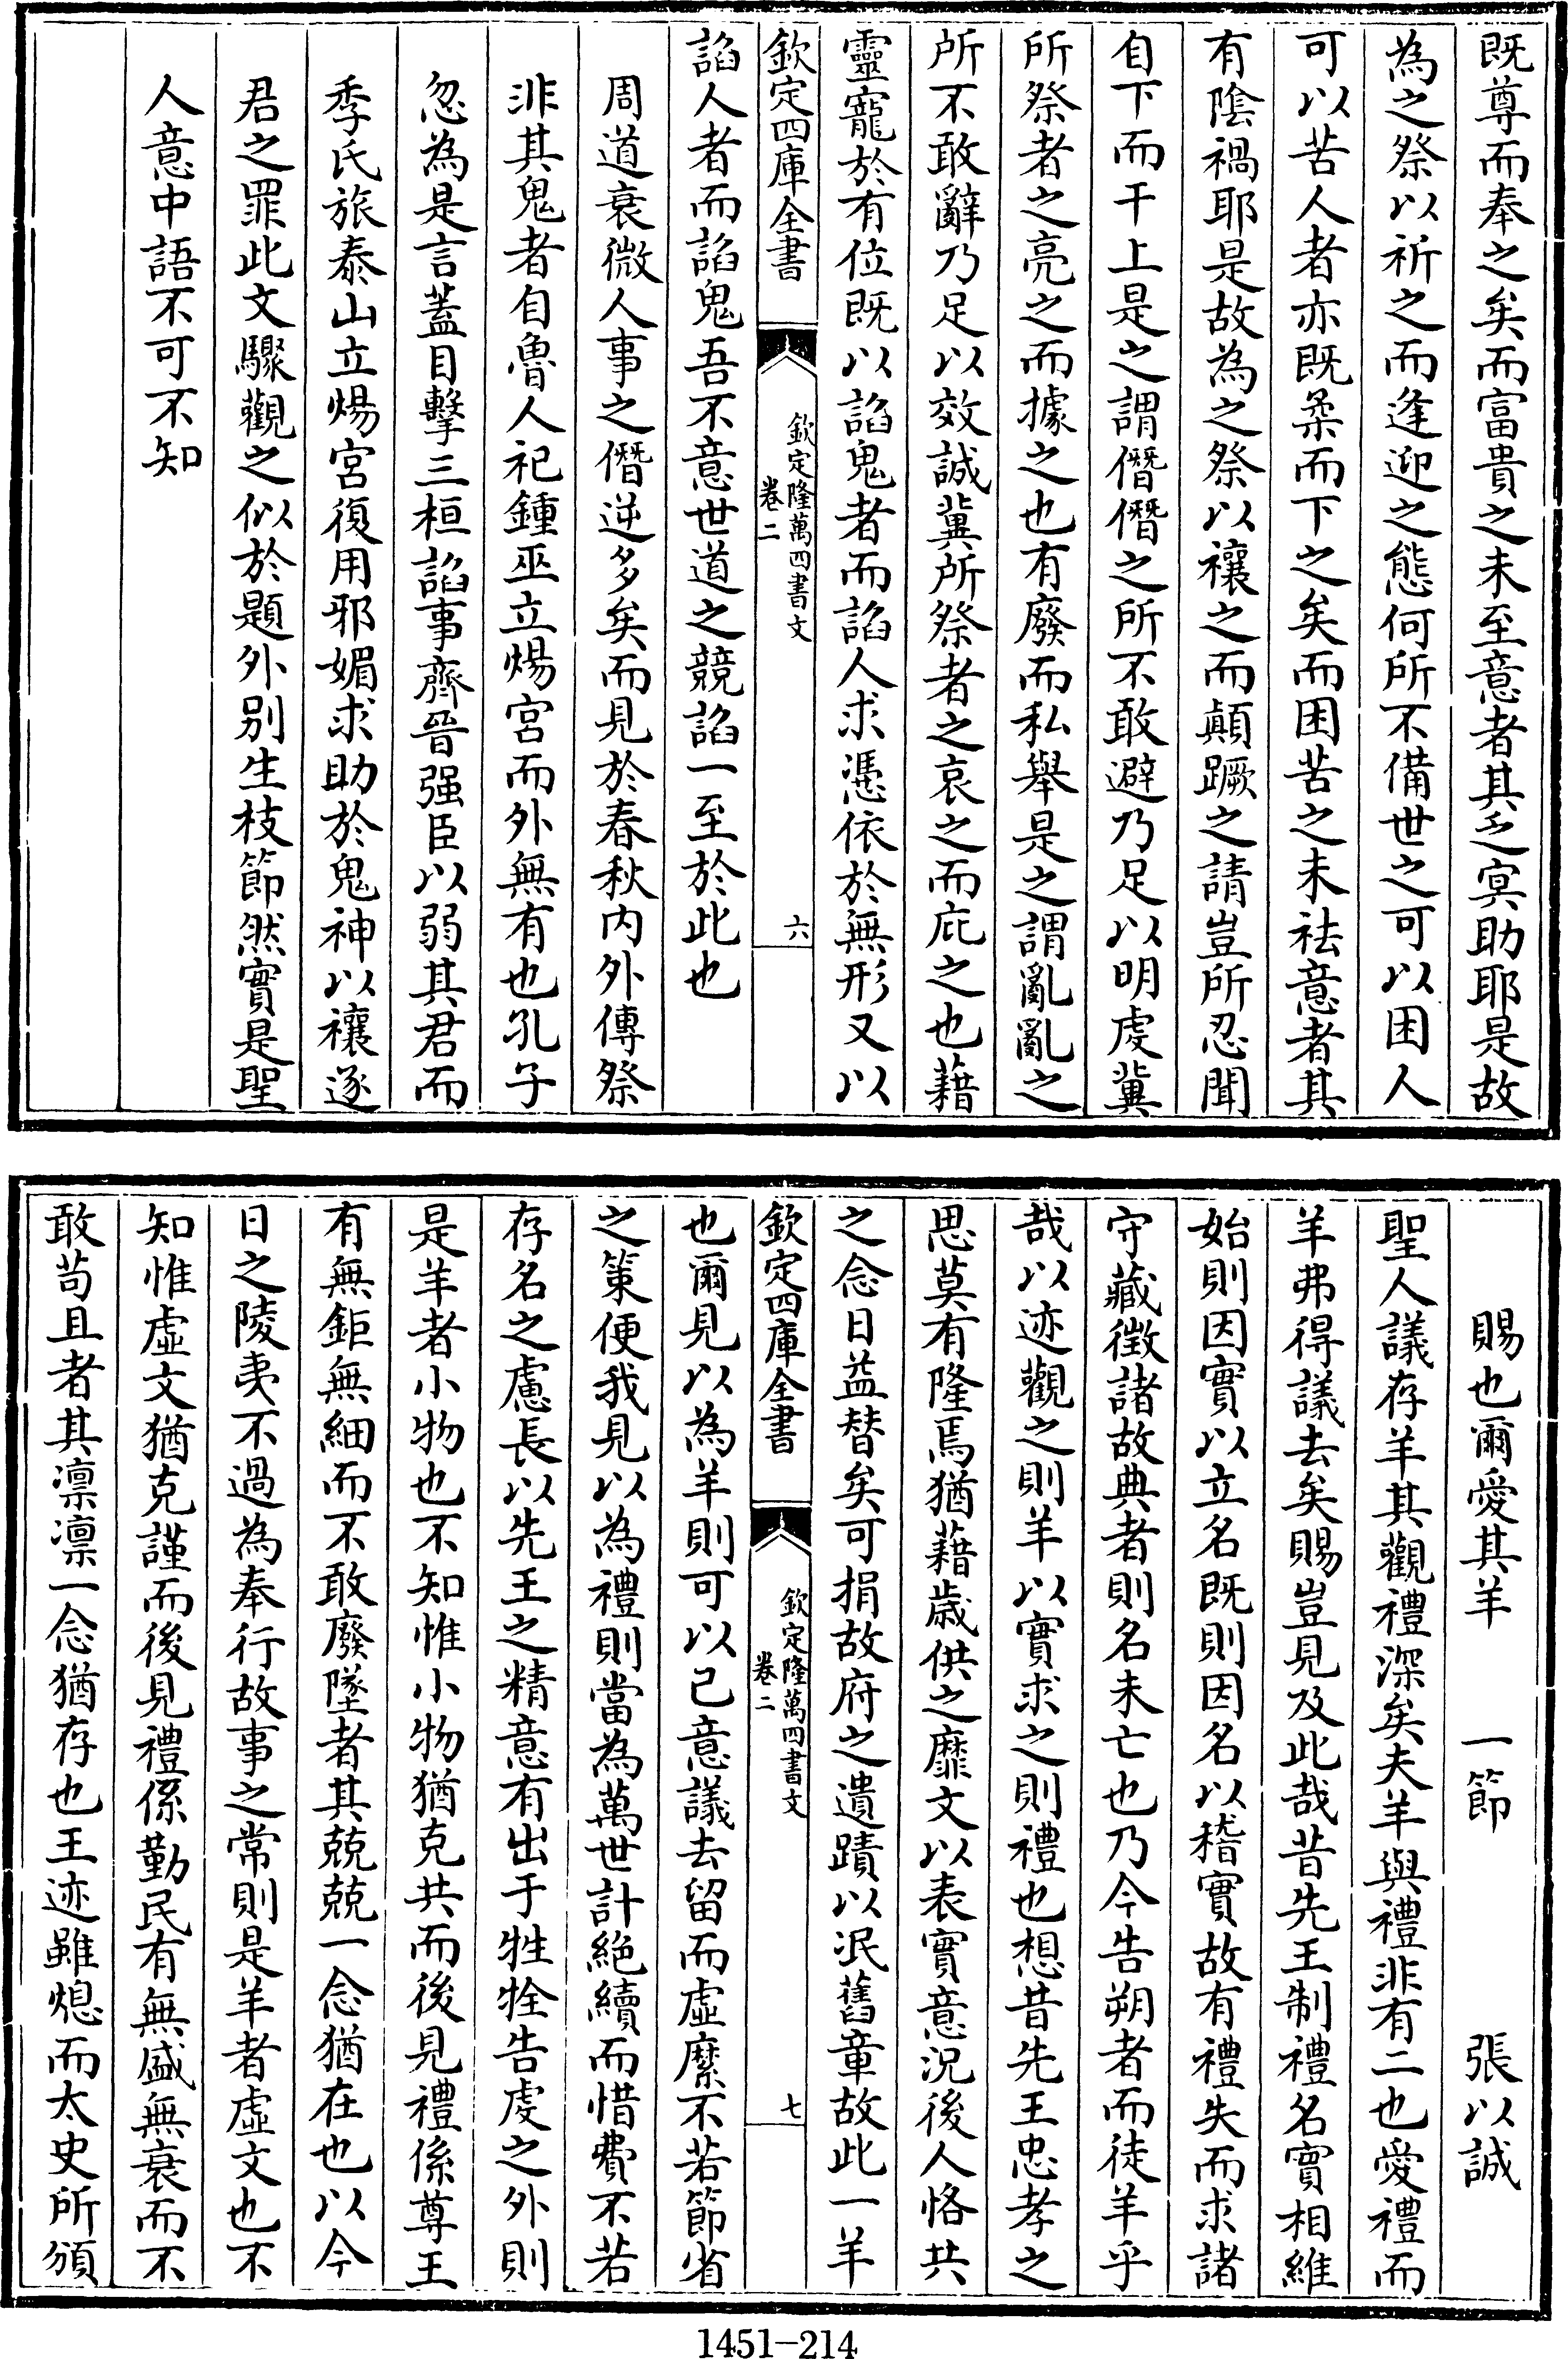 既尊而奉之矣而富貴之未至意者其乏㝠助耶是故
為之祭以祈之而逢迎之態何所不備世之可以困人
可以苦人者亦既柔而下之矣而困苦之未袪意者其
有陰禍耶是故為之祭以禳之而顛蹶之請豈所忍聞
自下而干上是之謂僭僭之所不敢避乃足以明虔冀
所祭者之亮之而據之也有廢而私舉是之謂亂亂之
所不敢辭乃足以效誠冀所祭者之哀之而庇之也藉
靈寵於有位既以諂鬼者而諂人求憑依於無形又以
欽定四庫全書
欽定隆萬四書文
卷二
六
諂人者而諂鬼吾不意世道之競諂一至於此也
周道衰微人事之僭逆多矣而見於春秋内外傳祭
非其鬼者自魯人祀鍾巫立煬宫而外無有也孔子
忽為是言蓋目擊三桓諂事齊晉强臣以弱其君而
季氏旅泰山立煬宫復用邪媚求助於鬼神以禳逐
君之罪此文驟觀之似於題外别生枝節然實是聖
人意中語不可不知
賜也爾愛其羊 一節 張以誠
聖人議存羊其觀禮深矣夫羊與禮非有二也愛禮而
羊弗得議去矣賜豈見及此哉昔先王制禮名實相維
始則因實以立名既則因名以稽實故有禮失而求諸
守藏徵諸故典者則名未亡也乃今告朔者而徒羊乎
哉以迹觀之則羊以實求之則禮也想昔先王忠孝之
思莫有隆焉猶藉歲供之靡文以表實意況後人恪共
之念日益替矣可捐故府之遺蹟以泯舊章故此一羊
欽定四庫全書
欽定隆萬四書文
卷二
七
也爾見以為羊則可以己意議去留而虛縻不若節省
之策便我見以為禮則當為萬世計絶續而惜費不若
存名之慮長以先王之精意有出于牲牷告虔之外則
是羊者小物也不知惟小物猶克共而後見禮係尊王
有無鉅無細而不敢廢墜者其兢兢一念猶在也以今
日之陵夷不過為奉行故事之常則是羊者虛文也不
知惟虛文猶克謹而後見禮係勤民有無盛無衰而不
敢苟且者其凛凛一念猶存也王迹雖熄而太史所頒
1451-214